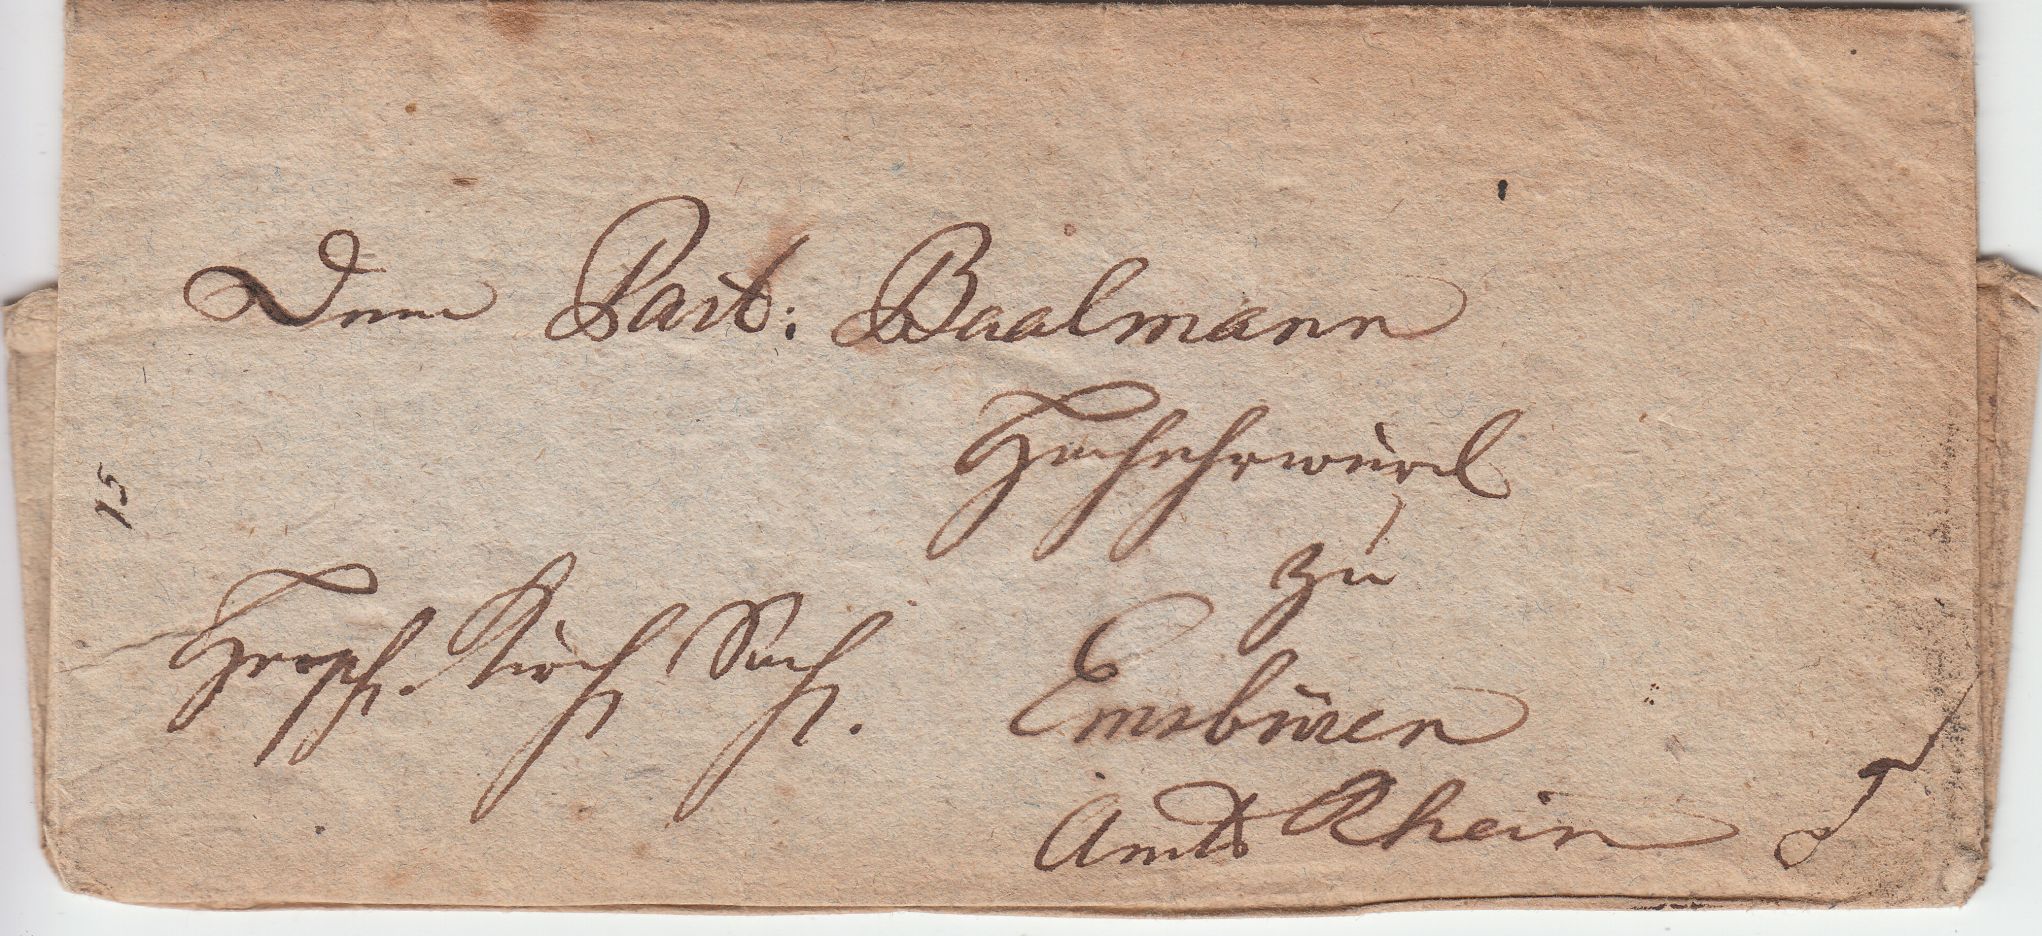 Dem Past: Baalmann
Hochehrwürd
zu
15
Herrsch. Kirch Sach.
Emsbüren
Amts Rhein